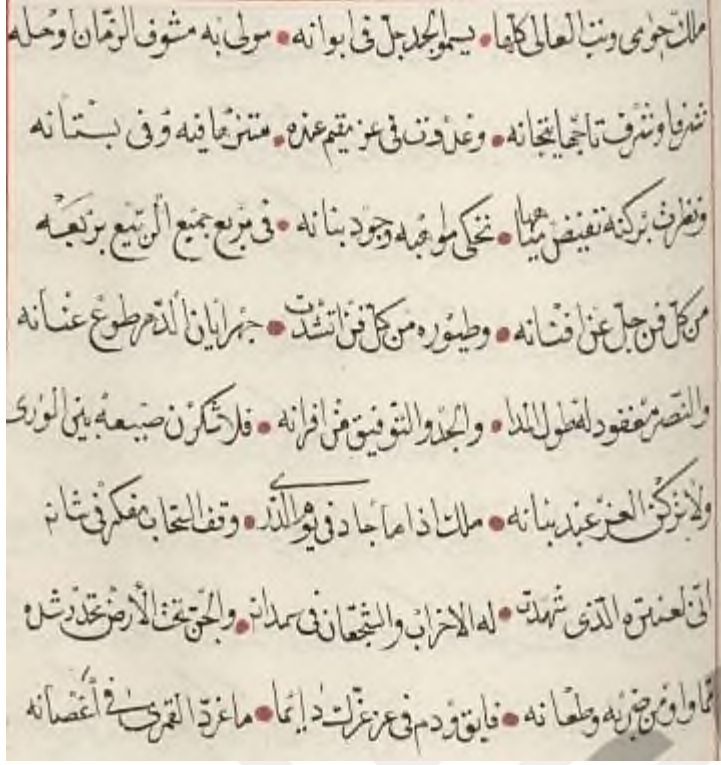 ملك حوى رتب المعالى كلها • يسمو بمجد جل فى ايوانه • مولى به مشوف الزمان وحله
شرفا وشرف تاجها بتجانه • وغدوت فى عز مقيم عنده • متنزها فيه وفى بستانه
ونظرت بركته تفيض مياها • تحكى مواهبه وجود بنانه • فى مربع جميع الربيع بربعه
من كل فن جل عن افنانه • وطيوره من كل فن انشدت • جهرا بان الدهر طوع عنانه
والنصر معقود له طول المدا • والجد والتوفيق من اقرانه • فلا شكرن صنيعه بين الورى
ولا تركن العز عند بنانه • ملك اذا ما جاد فى يوم الندى • وقف السحاب مفكر فى شانه
انى لعنتره الذى شهدت • له الاحزاب والشجعان فى ميدانه • والجن تحت الارض تحذر شده
مما راوا من ضربه وطعانه • فابق ودم فى عز عزك دائما • ما غرد القمرى فى اغصانه